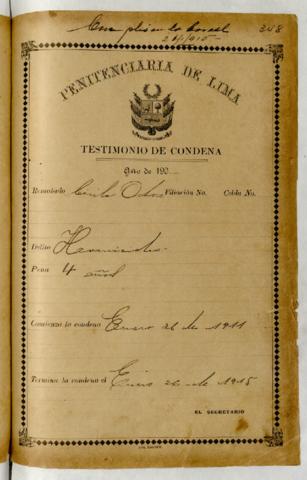 Cumplió su condena 348
26/1/915
PENITENCIARIA DE LIMA
TESTIMONIO DE CONDENA
Año de 190
Rematado Cirilo Filiación No. Celda No.
Delito Homicidio
Pena 4 años
Comienza la condena Enero 26 de 1911
Termina la condena el Enero 26 de 1915
EL SECRETARIO